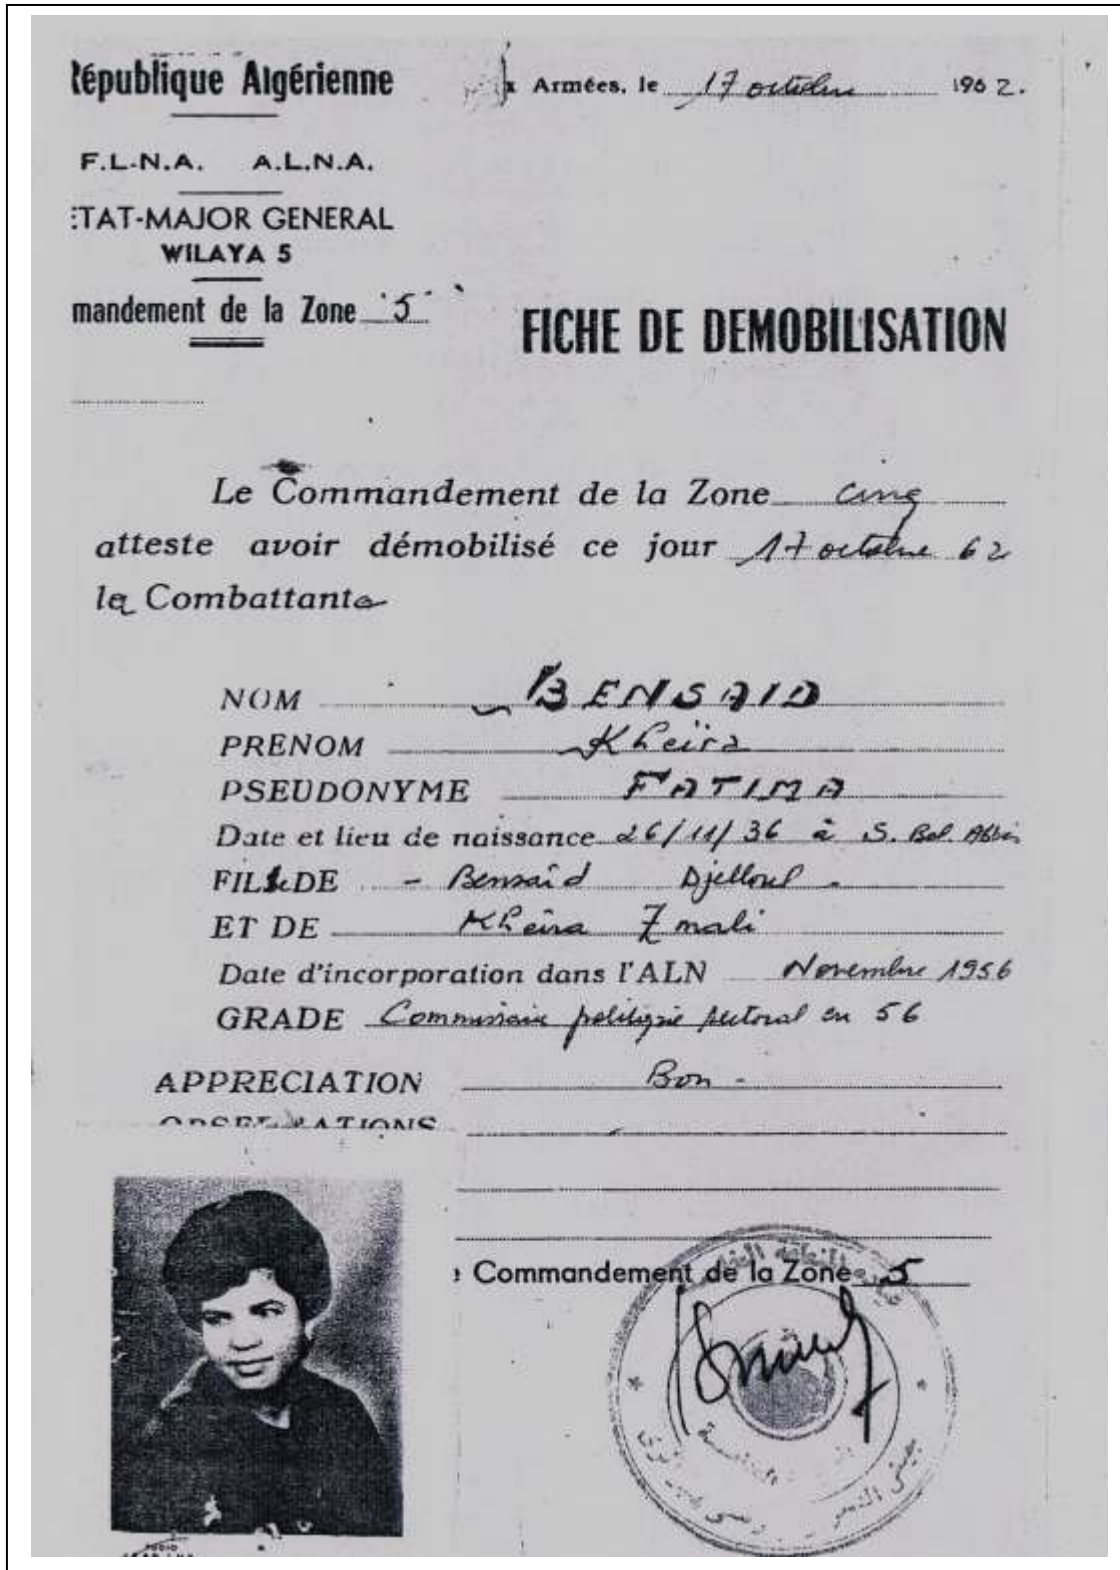 République Algérienne
x Armées, le 17 octobre 1962.
F.L-N.A. A.L.N.A.
ETAT-MAJOR GENERAL
WILAYA 5
mandement de la Zone 5
FICHE DE DEMOBILISATION
Le Commandement de la Zone cinq
atteste avoir démobilisé ce jour 17 octobre 62
la Combattante
NOM BENSAID
PRENOM Kheïra
PSEUDONYME FATIMA
Date et lieu de naissance 26/11/36 à S. Bel. Abbès
FILLE DE - Bensaïd Djelloul -
ET DE Kheïra Zmali
Date d'incorporation dans l'ALN Novembre 1956
GRADE Commissaire politique sectoral en 56
APPRECIATION Bon -
OBSERVATIONS
e Commandement de la Zone 5